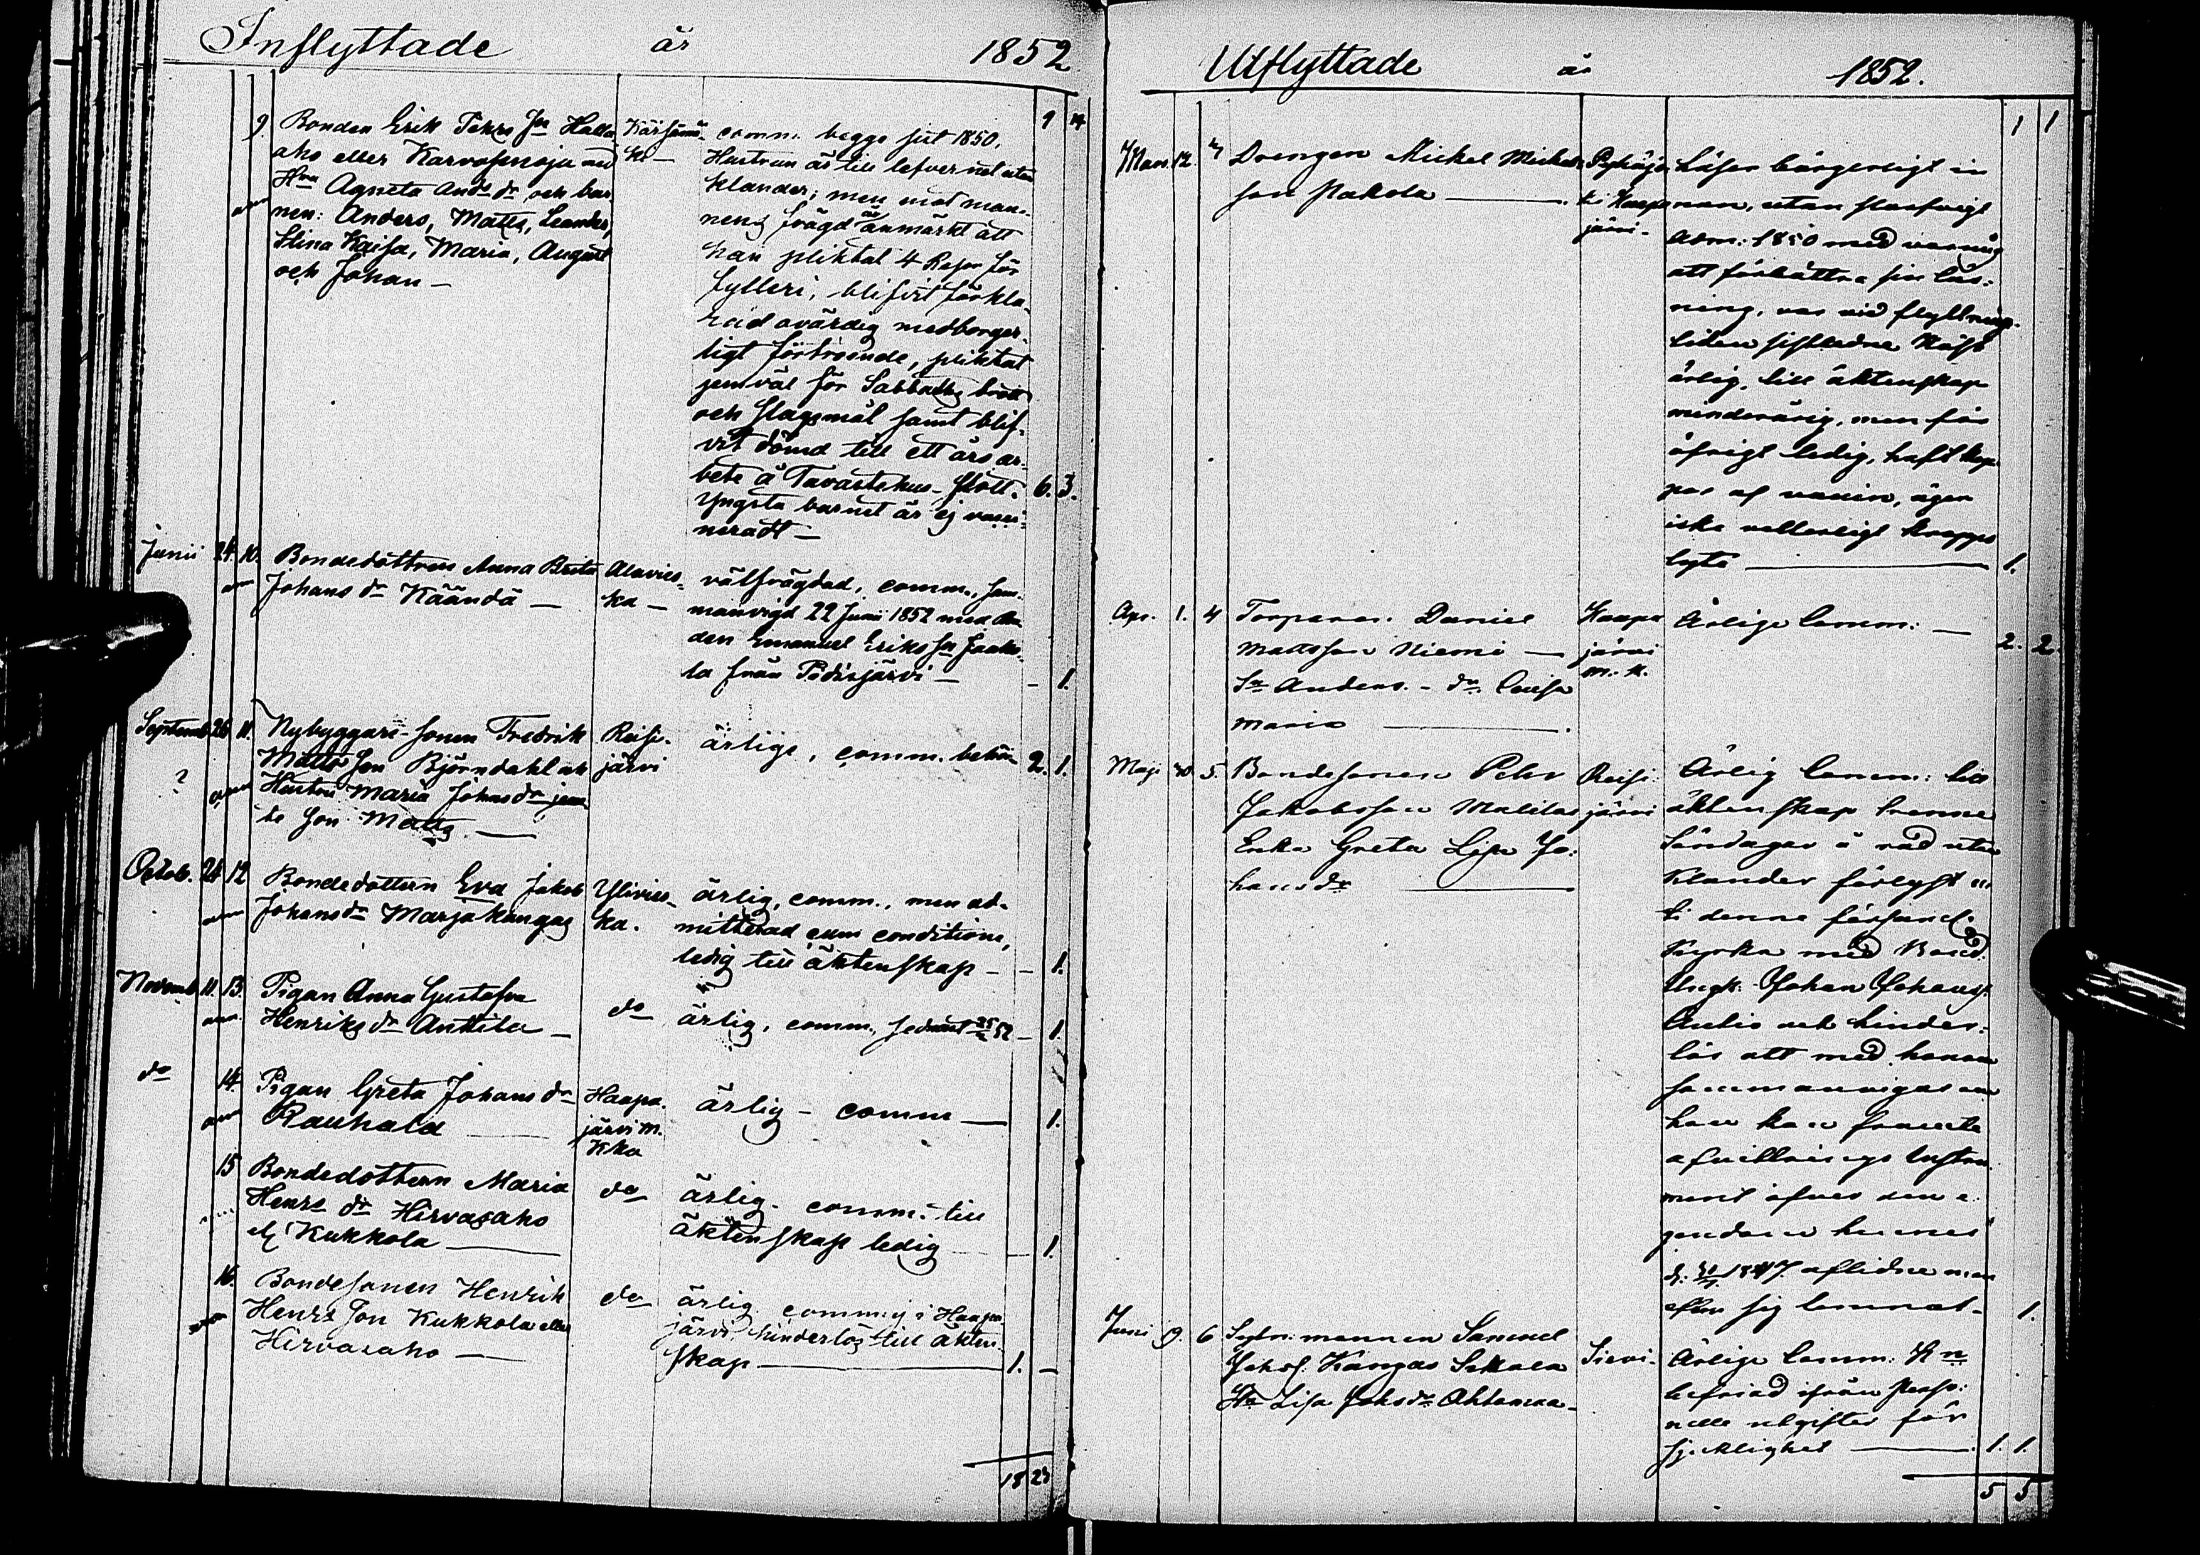 Inflyttade år 1852
9 14
9. Bonden Erik Pehrs Son Halla
aho eller Karvosenoja med
Hru Agneta Ands dr och bar
nen: Anders, Matts, Leander,
Stina Kaisa, Maria, August
och Johan –
Kärsämä
ki –
comm. begge sist 1850.
Hustrun är till lefvernet utan
klander; men mot man-
nens frägd är anmärkt att
han pliktat 4 Resor för
fylleri, blifvit förkla-
rad ovärdig medborger-
ligt förtroende, pliktat
jemväl för Sabbaths brott
och slagsmål samt blif-
vit dömd till ett års ar-
bete å Tavastehus Slott.
Yngsta barnet är ej vacci-
neradt –
6. 3.
Junii 24. 10. Bondedottren Anna Brita
Johans dr Käändä –
Alavies-
ka –
välfrägdad, comm., sam-
manvigd 22 Junii 1852 med
den Emanuel Eriks Son Jaako-
la från Pidisjärvi –
– 1.
Septemb 26 11. Nybyggare-sonen Fredrik
Matts Son Björndahl och
Hustru Maria Johans dr jem
te Son Matts –
Reisi-
järvi
ärlige, comm. 
2. 1.
?
Octob. 24 12. Bondedottern Eva Jakob
Johans dr Marjakangas
Ylivies-
ka.
ärlig, comm., men ad-
mitterad cum conditione,
ledig till äktenskap –
– 1.
Novemb 11. 13. Pigan Anna Gustafva
Henriks dr Anttila –
do
ärlig, comm.
– 1.
do 14. Pigan Greta Johans dr
Rauhala
Haapa-
järvi m.
Kka
ärlig – comm –
1.
15 Bondedottern Maria
Henrs dr Hirvasaho
elr Kukkola –
do
ärlig. comm. till
äktenskap ledig
– 1.
16. Bondesonen Henrik
Henrs Son Kukkola eller
Hirvasaho –
do
ärlig comm. i Haapa-
järvi hinderlös till äkten-
skap –
1. –
18 23
Utflyttade år 1852.
1 1
Mars 12. 3 Drengen Mickel Mickels
son Pakola –
Pyhäjo
ki Haapa
järvi –
Läser börgerligt in
nan, utan 
Adm: 1850 med varning
att förbättra sin läs-
ning, var vid flyttnings
tiden sistledne Höst
ärlig, till äktenskap
minderårig, men för
öfrigt ledig, haft kop-
por af vaccin, äger
icke vetterligt kropps
lyte –
1.
Apr. 1. 4 Torparen Daniel
Mattsson Niemi –
Sn Anders – dr Caisa
Maria –
Haapa
järvi
m. k.
Ärlige Comm: –
2. 2.
Maji 30. 5. Bondesonen Pehr
Jakobsson Malilas
Enka Greta Lisa Jo-
hans dr –
Reisi-
järvi
Ärlig Comm: till
äktenskap trenne
Söndagar å rad utan
klander förlyst
i denne församl.
Kyrka med Bond.
Ungk: Johan Johanss.
 och hinder-
lös att med honom
sammanvigas
hon kan 
afvittrings Instru
ment öfver den e-
gendom hennes
 1847. aflidne man
efter sig lemnat –
1.
Juni 9. 6 Sytn. mannen Samuel
Jakobs: Kangas 
Hu Lisa Jakobs dr Ahlamaa –
Sievi –
Ärlige Comm: 
befriad ifrån Perso-
nelle utgifter för
sjuklighet –
1. 1.
5 5